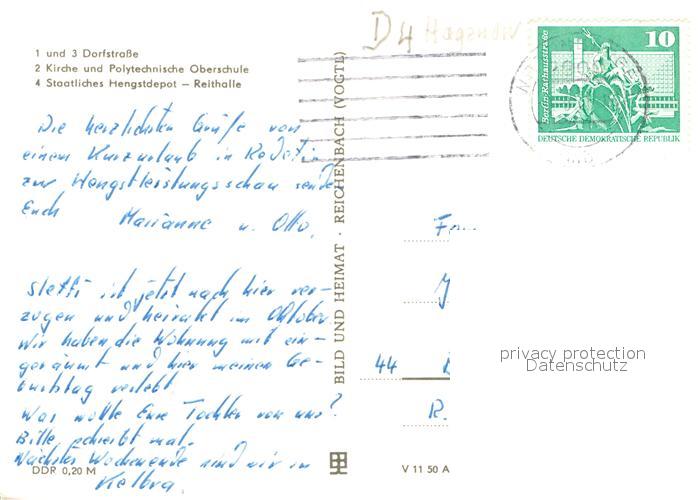 1 und 3 Dorfstraße
2 Kirche und Polytechnische Oberschule
4 Staatliches Hengstdepot — Reithalle
D4
10
Berlin-Rathausstraße
DEUTSCHE DEMOKRATISCHE REPUBLIK
Die herzlichsten Grüße von
einem Kurzurlaub in Redefin
zur Hengstleistungsschau sende
Euch
Marianne u. Otto.
Steffi ist jetzt nach hier ver-
zogen und heiratet im Oktober
Wir haben die Wohnung mit ein-
geräumt und hier meinen Ge-
burtstag verlebt
Was wollte Eure Tochter von uns?
Bitte, schreibt mal.
Nächstes Wochenende sind wir in
Kelbra
BILD UND HEIMAT · REICHENBACH (VOGTL)
44
R.
privacy protection
Datenschutz
DDR 0,20 M
V 11 50 A